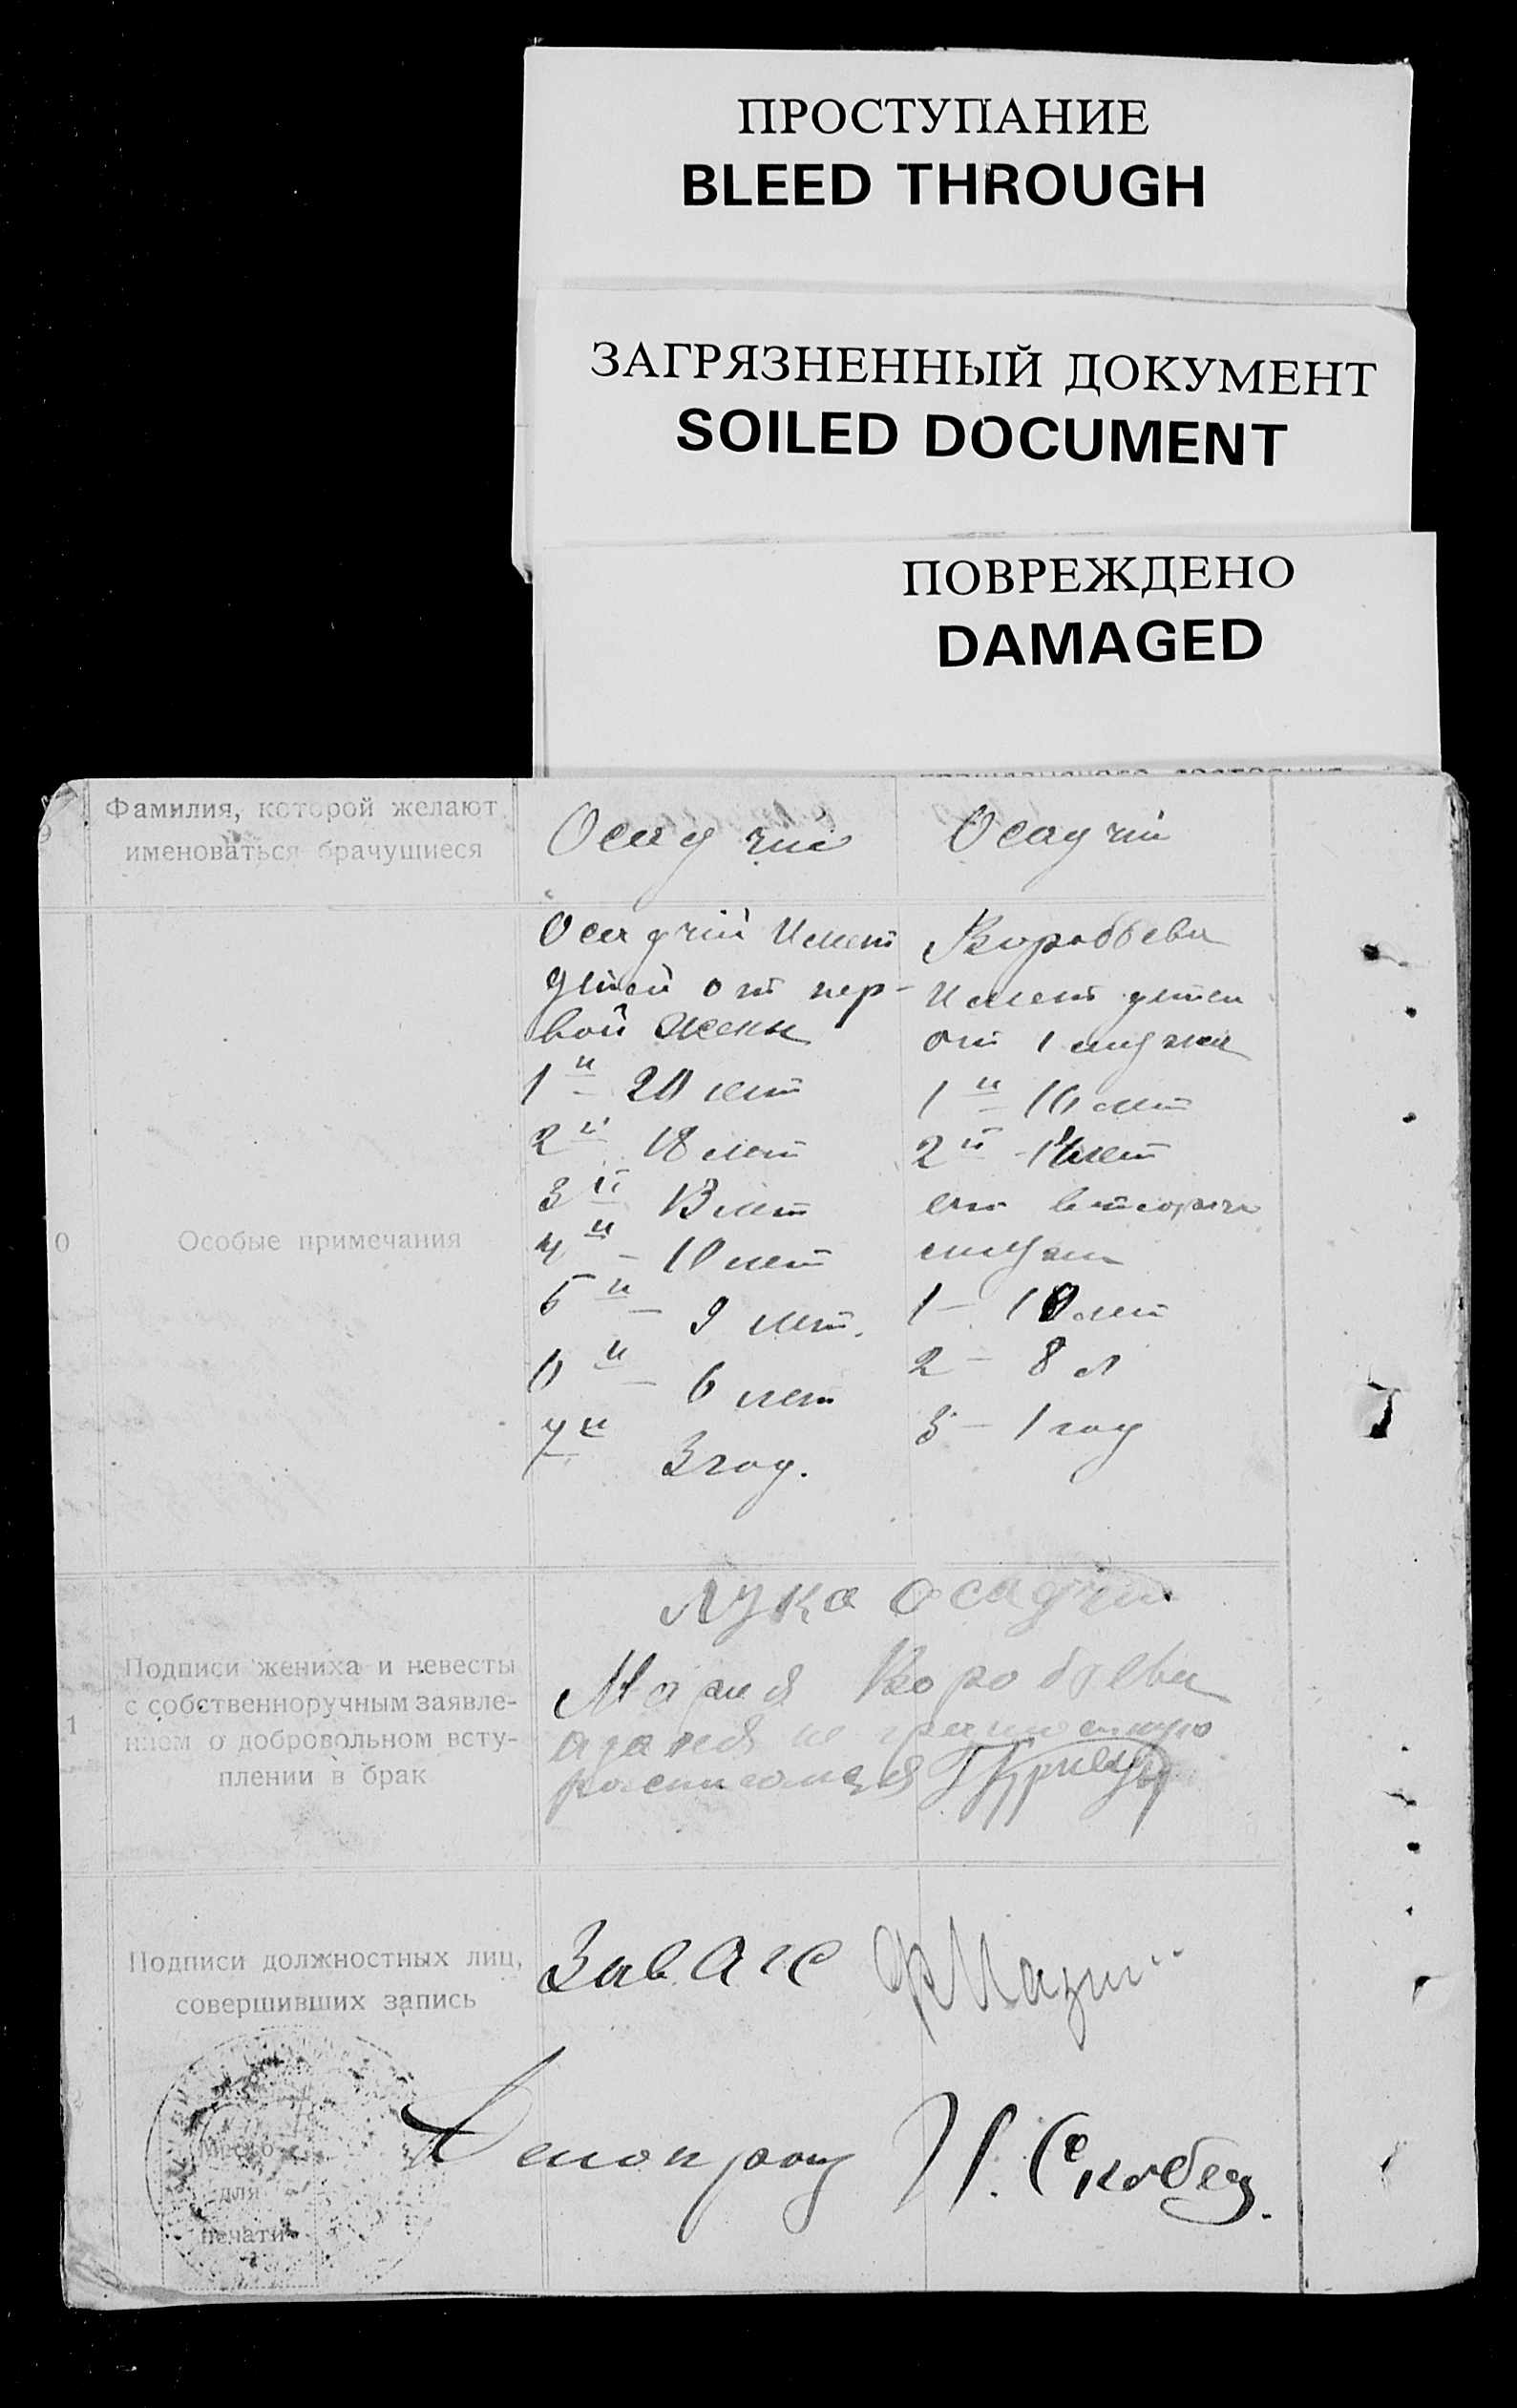 ПРОСТУПАНИЕ
BLEED THROUGH
ЗАГРЯЗНЕННЫЙ ДОКУМЕНТ
SOILED DOCUMENT
ПОВРЕЖДЕНО
DAMAGED
9 Фамилия, которой желают именоваться брачущиеся
Осадчий
Осадчий
0 Особые примечания
Осадчий Имеет
детей от пер-
вой жены
1й - 20 лет
2й 18 лет
3й 13 лет
4й - 10 лет
5й - 9 лет.
6й - 6 лет
7й 3 год.
Воробьева
Имеет детей
от 1 мужа
1й - 16 лет
2й - лет
от второго
мужа
1 - 10 лет
2 - 8 л
3 - 1 год
1 Подписи жениха и невесты
с собственноручным заявле-
нием о добровольном всту-
плении в брак
Лука Осадчий
Мария Воробьева
а за неё не грамотную
росписался
Подписи должностных лиц,
совершивших запись
Завагс
Делопрои И. Скобец.
Место
для
печати